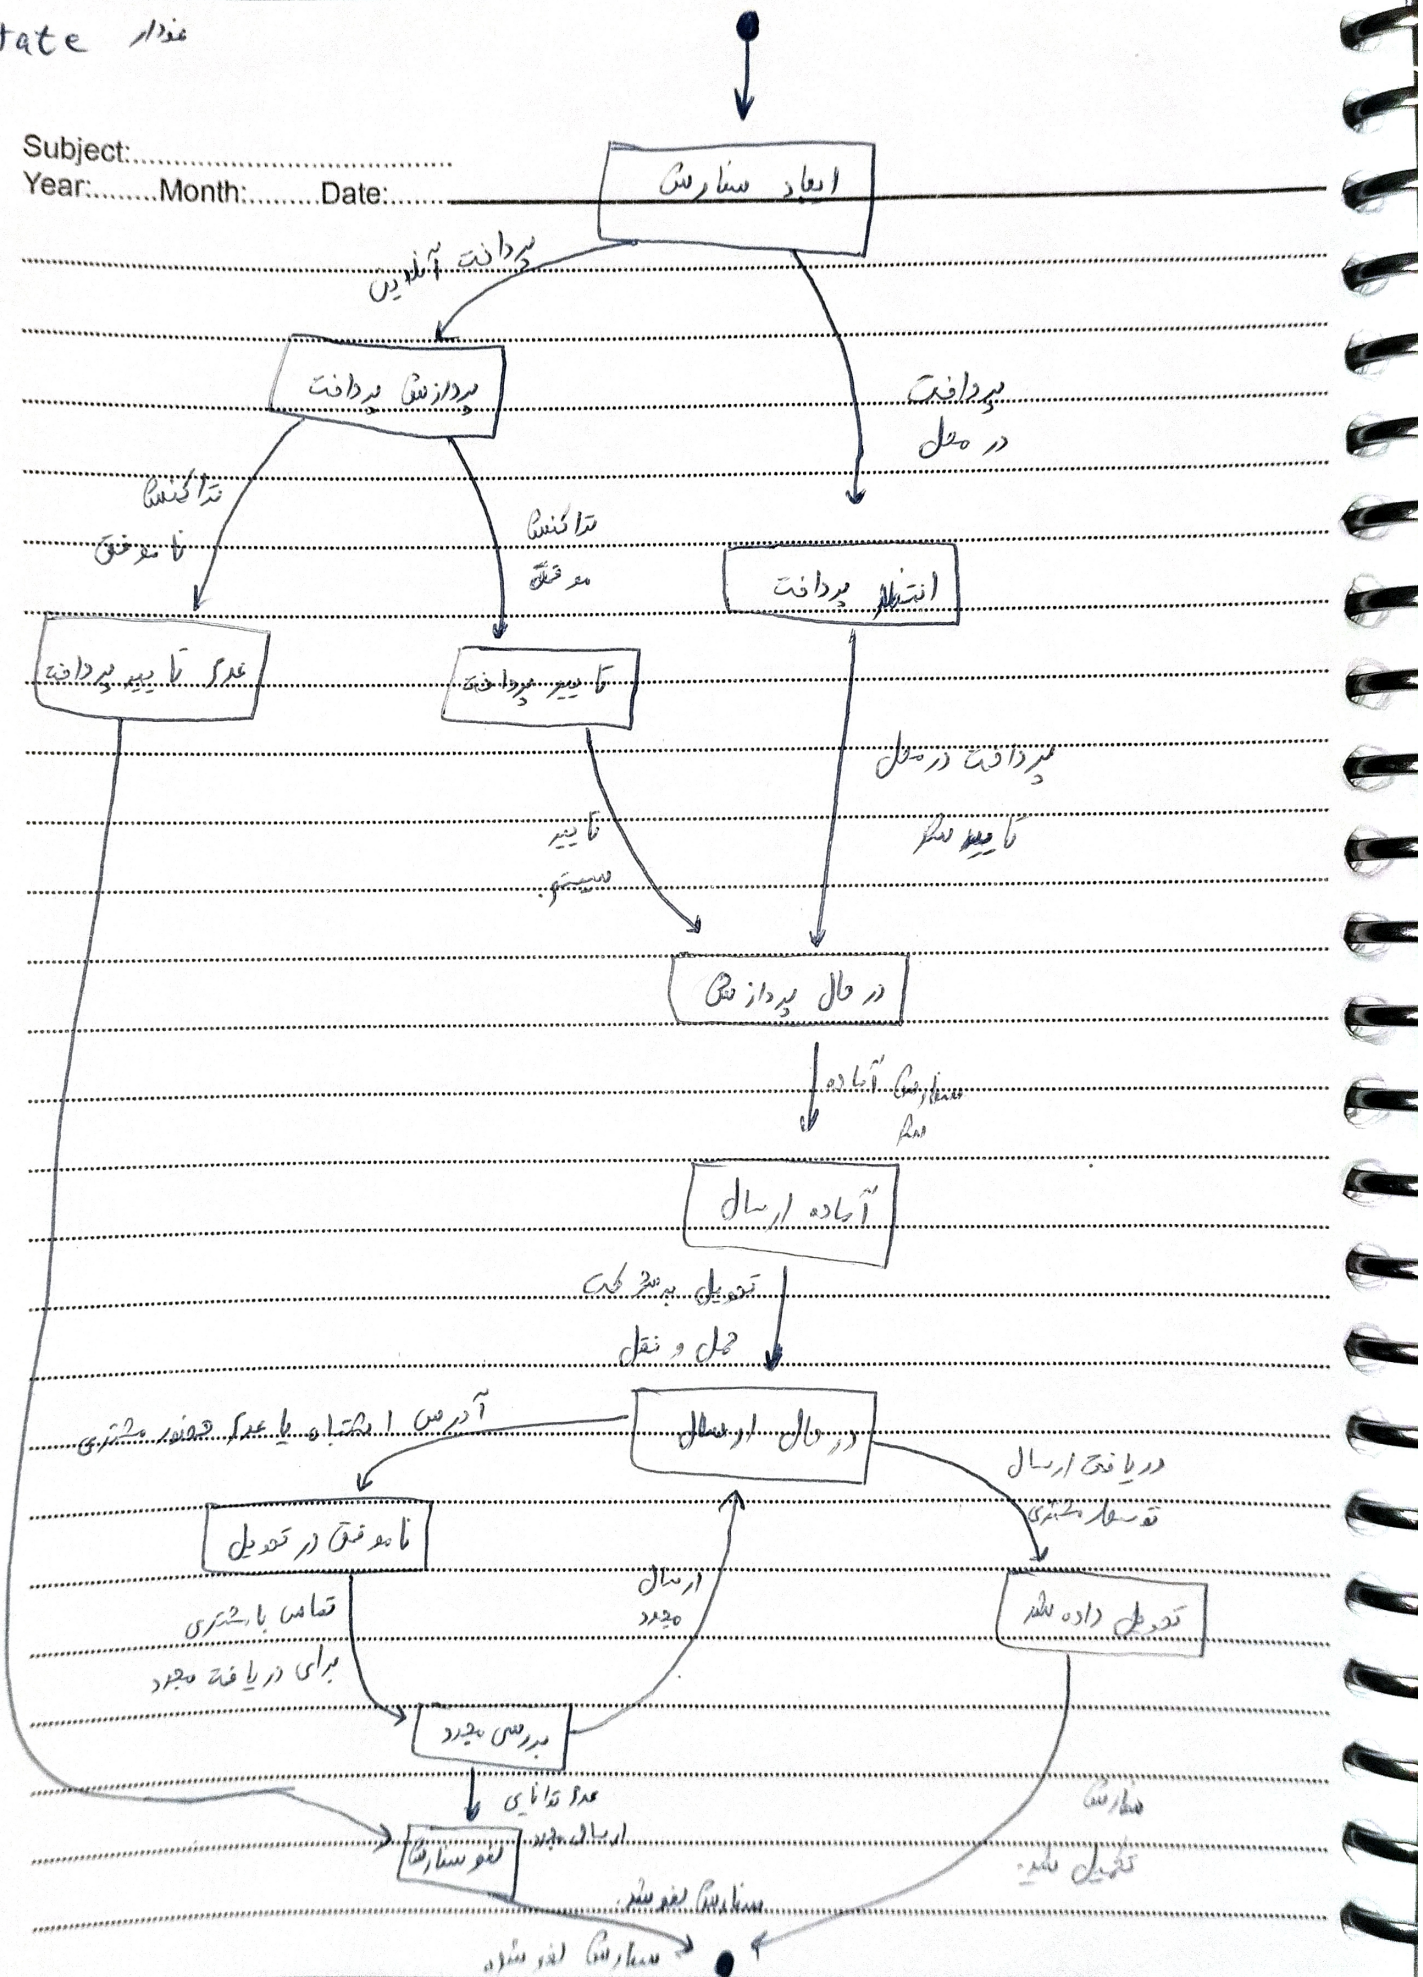 نمودار tate
Subject:
Year: Month: Date:
ایجاد سفارش
پرداخت آنلاین
پردازش پرداخت
پرداخت
در محل
تراکنش
ناموفق
تراکنش
موفق
انتظار پرداخت
عدم تایید پرداخت
تایید پرداخت
پرداخت در محل
تایید شد
تایید
سیستم.
در حال پردازش
سفارش آماده
شد
آماده ارسال
تحویل به شرکت
حمل و نقل
آدرس اشتباه یا عدم حضور مشتری
در حال ارسال
دریافت ارسال
توسط مشتری
ناموفق در تحویل
ارسال
مجدد
تحویل داده شد
تماس با مشتری
برای دریافت مجدد
بررسی مجدد
عدم توانایی
ارسال مجدد
لغو سفارش
سفارش
تکمیل شد.
سفارش لغو شد.
سفارش لغو شده